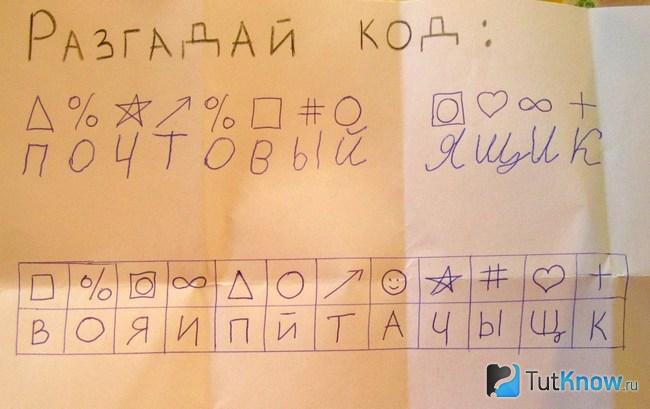 РАЗГАДАЙ КОД:
△ % ☆ ↗ % □ # ○ ▣ ♡ ∞ +
ПОЧТОВЫЙ ЯЩИК
□ % ▣ ∞ △ ○ ↗ ☺ ☆ # ♡ +
В О Я И П Й Т А Ч Ы Щ К
TutKnow.ru